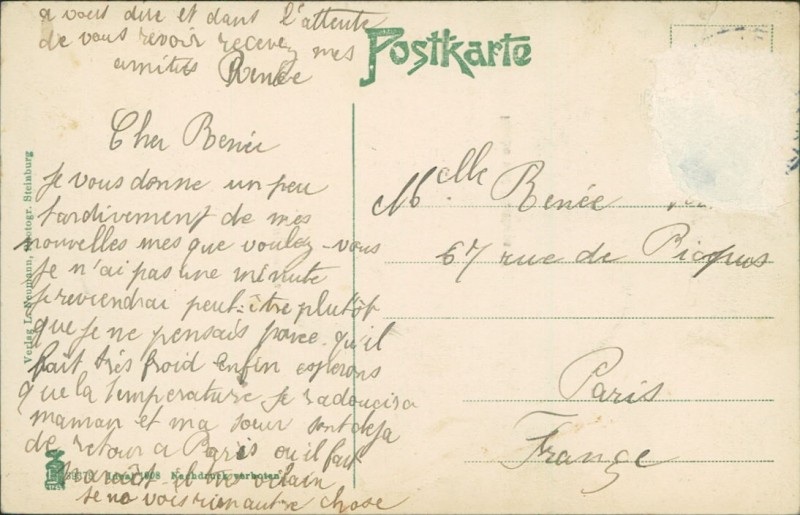 Cher Renée
Je vous donne un peu
tardivement de mes
nouvelles mes que voulez-vous
Je n'ai pas une minute
Je reviendrai peut-être plutôt
que je ne pensais parce-qu'il
fait très froid enfin esperons
que la temperature se radoucira
maman et ma soeur sont deja
de retour a Paris ou il fait
parait-il bien vilain
Je ne vois rien autre chose
a vous dire et dans l'attente
de vous revoir recevez mes
amitiés Renée
Postkarte
Melle Renée
67 rue de Picpus
Paris
France
Verlag L. Neumann, Photogr. Steinburg
Nachdruck verboten